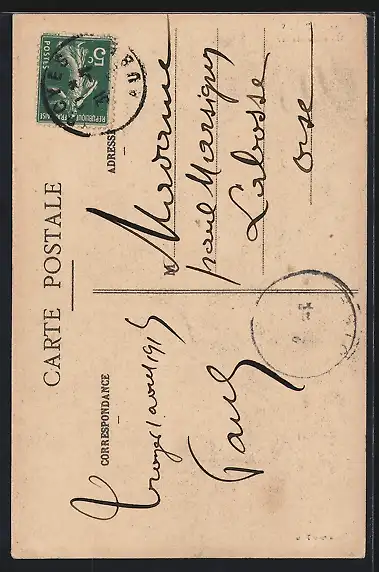 CARTE POSTALE
CORRESPONDANCE
Troyes 1 avril 1915
Paul
ADRESSE
5c
POSTES
REPUBLIQUE FRANÇAISE
TROYES
AUB
M
Madame
paul Marsigny
Labosse
oise